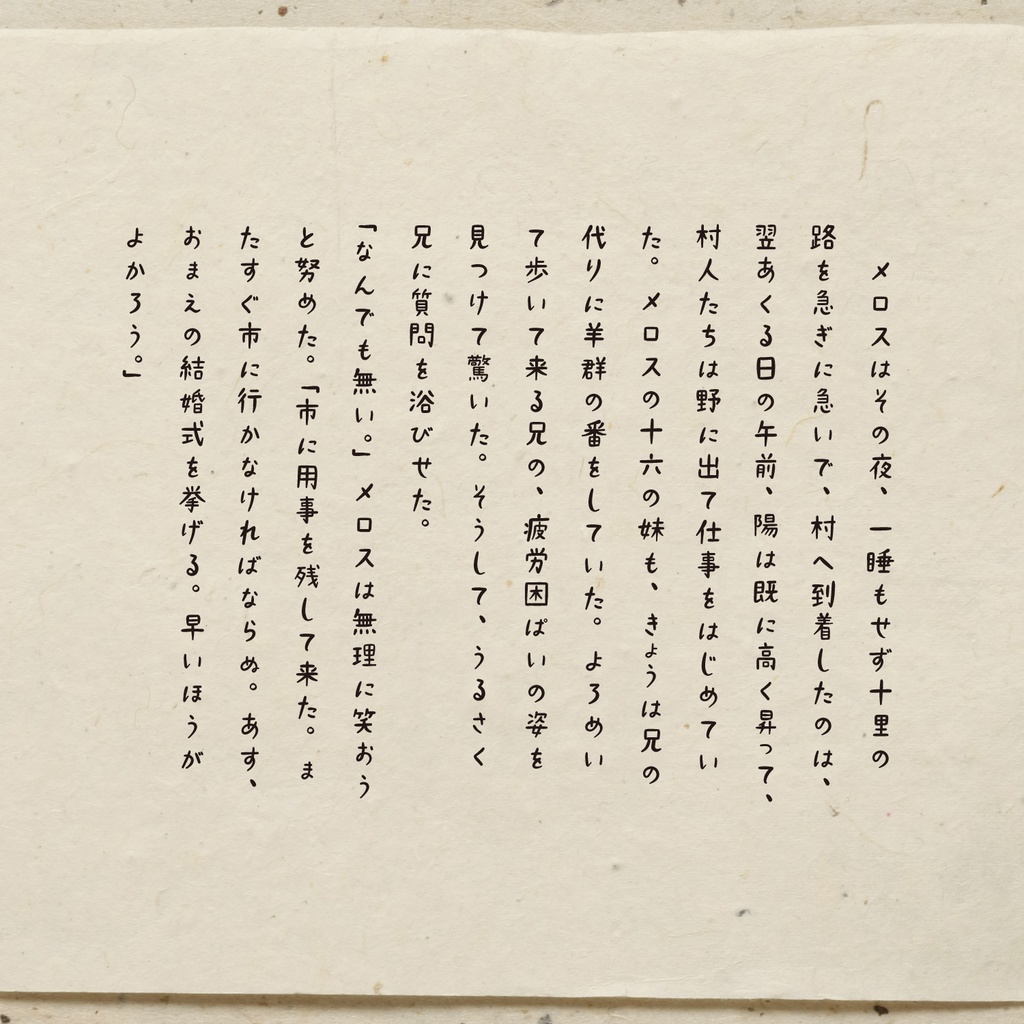 メロスはその夜、一睡もせず十里の
路を急ぎに急いで、村へ到着したのは、
翌あくる日の午前、陽は既に高く昇って、
村人たちは野に出て仕事をはじめてい
た。メロスの十六の妹も、きょうは兄の
代りに羊群の番をしていた。よろめい
て歩いて来る兄の、疲労困ぱいの姿を
見つけて驚いた。そうして、うるさく
兄に質問を浴びせた。
「なんでも無い。」メロスは無理に笑おう
と努めた。「市に用事を残して来た。ま
たすぐ市に行かなければならぬ。あす、
おまえの結婚式を挙げる。早いほうが
よかろう。」